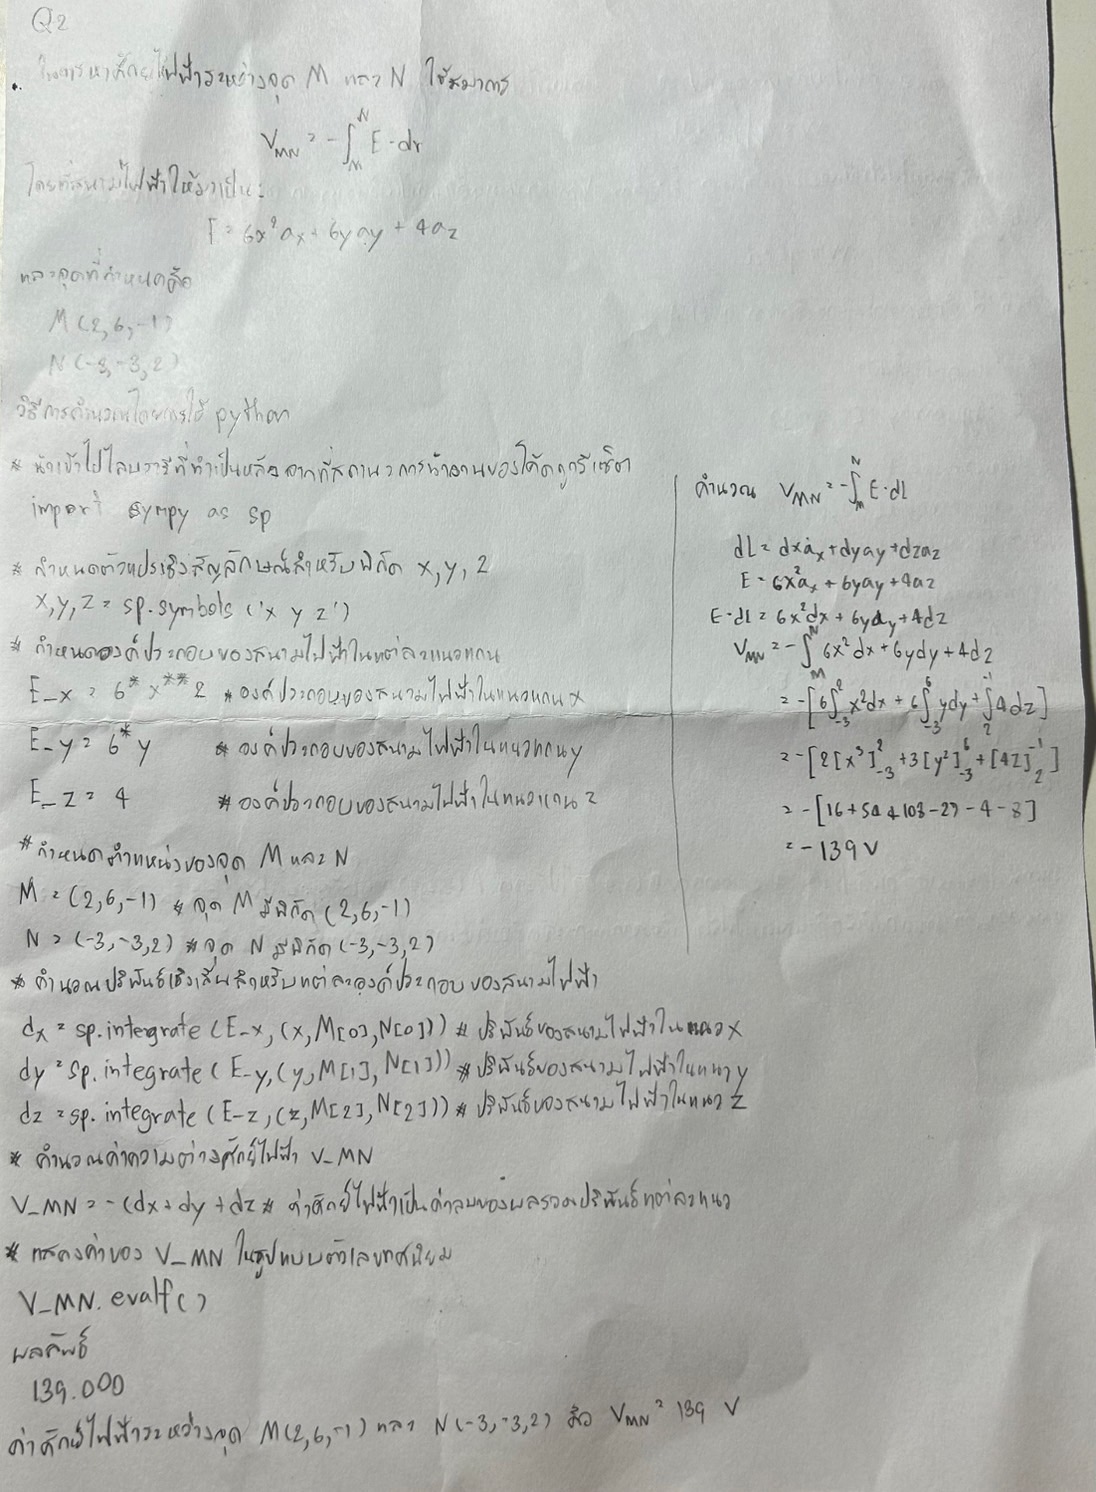 Q2
ในการหาศักย์ไฟฟ้าระหว่างจุด M และ N ใช้สมการ
V_MN = -∫_M^N E·dr
โดยที่สนามไฟฟ้าให้มาเป็น:
E = 6x²ax + 6yay + 4az
และจุดที่กำหนดคือ
M(2,6,-1)
N(-3,-3,2)
วิธีการคำนวณโดยการใช้ python
import sympy as sp
# กำหนดตัวแปรเชิงสัญลักษณ์สำหรับพิกัด x,y,z
x,y,z = sp.symbols ('x y z')
# กำหนดองค์ประกอบของสนามไฟฟ้าในแต่ละแนวแกน
E_x = 6*x**2 # องค์ประกอบของสนามไฟฟ้าในแนวแกน x
E_y = 6*y # องค์ประกอบของสนามไฟฟ้าในแนวแกน y
E_z = 4 # องค์ประกอบของสนามไฟฟ้าในแนวแกน z
# กำหนดตำแหน่งของจุด M และ N
M = (2,6,-1) # จุด M มีพิกัด (2,6,-1)
N = (-3,-3,2) # จุด N มีพิกัด (-3,-3,2)
# คำนวณปริพันธ์เชิงเส้นสำหรับแต่ละองค์ประกอบของสนามไฟฟ้า
dx = sp.intergrate (E_x, (x, M[0], N[0])) # ปริพันธ์ของสนามไฟฟ้าในแนว x
dy = sp.integrate (E_y, (y, M[1], N[1])) # ปริพันธ์ของสนามไฟฟ้าในแนว y
dz = sp.integrate (E_z, (z, M[2], N[2])) # ปริพันธ์ของสนามไฟฟ้าในแนว z
# คำนวณค่าความต่างศักย์ไฟฟ้า V_MN
V_MN = -(dx + dy + dz # ค่าศักย์ไฟฟ้าเป็นค่าลบของผลรวมปริพันธ์แต่ละแนว
# แสดงค่าของ V_MN ในรูปแบบตัวเลขทศนิยม
V_MN. evalf()
ผลลัพธ์
139.000
ค่าศักย์ไฟฟ้าระหว่างจุด M(2,6,-1) และ N(-3,-3,2) คือ V_MN = 139 V
คำนวณ V_MN = -∫_M^N E·dL
dL = dxax + dyay + dzaz
E = 6x²ax + 6yay + 4az
E·dL = 6x²dx + 6ydy + 4dz
V_MN = -∫_M^N 6x²dx + 6ydy + 4dz
= -[6∫_-3^2 x²dx + 6∫_-3^6 ydy + ∫_2^-1 4dz]
= -[2[x³]_-3^2 + 3[y²]_-3^6 + [4z]_2^-1]
= -[16+54+108-27-4-8]
= -139 V